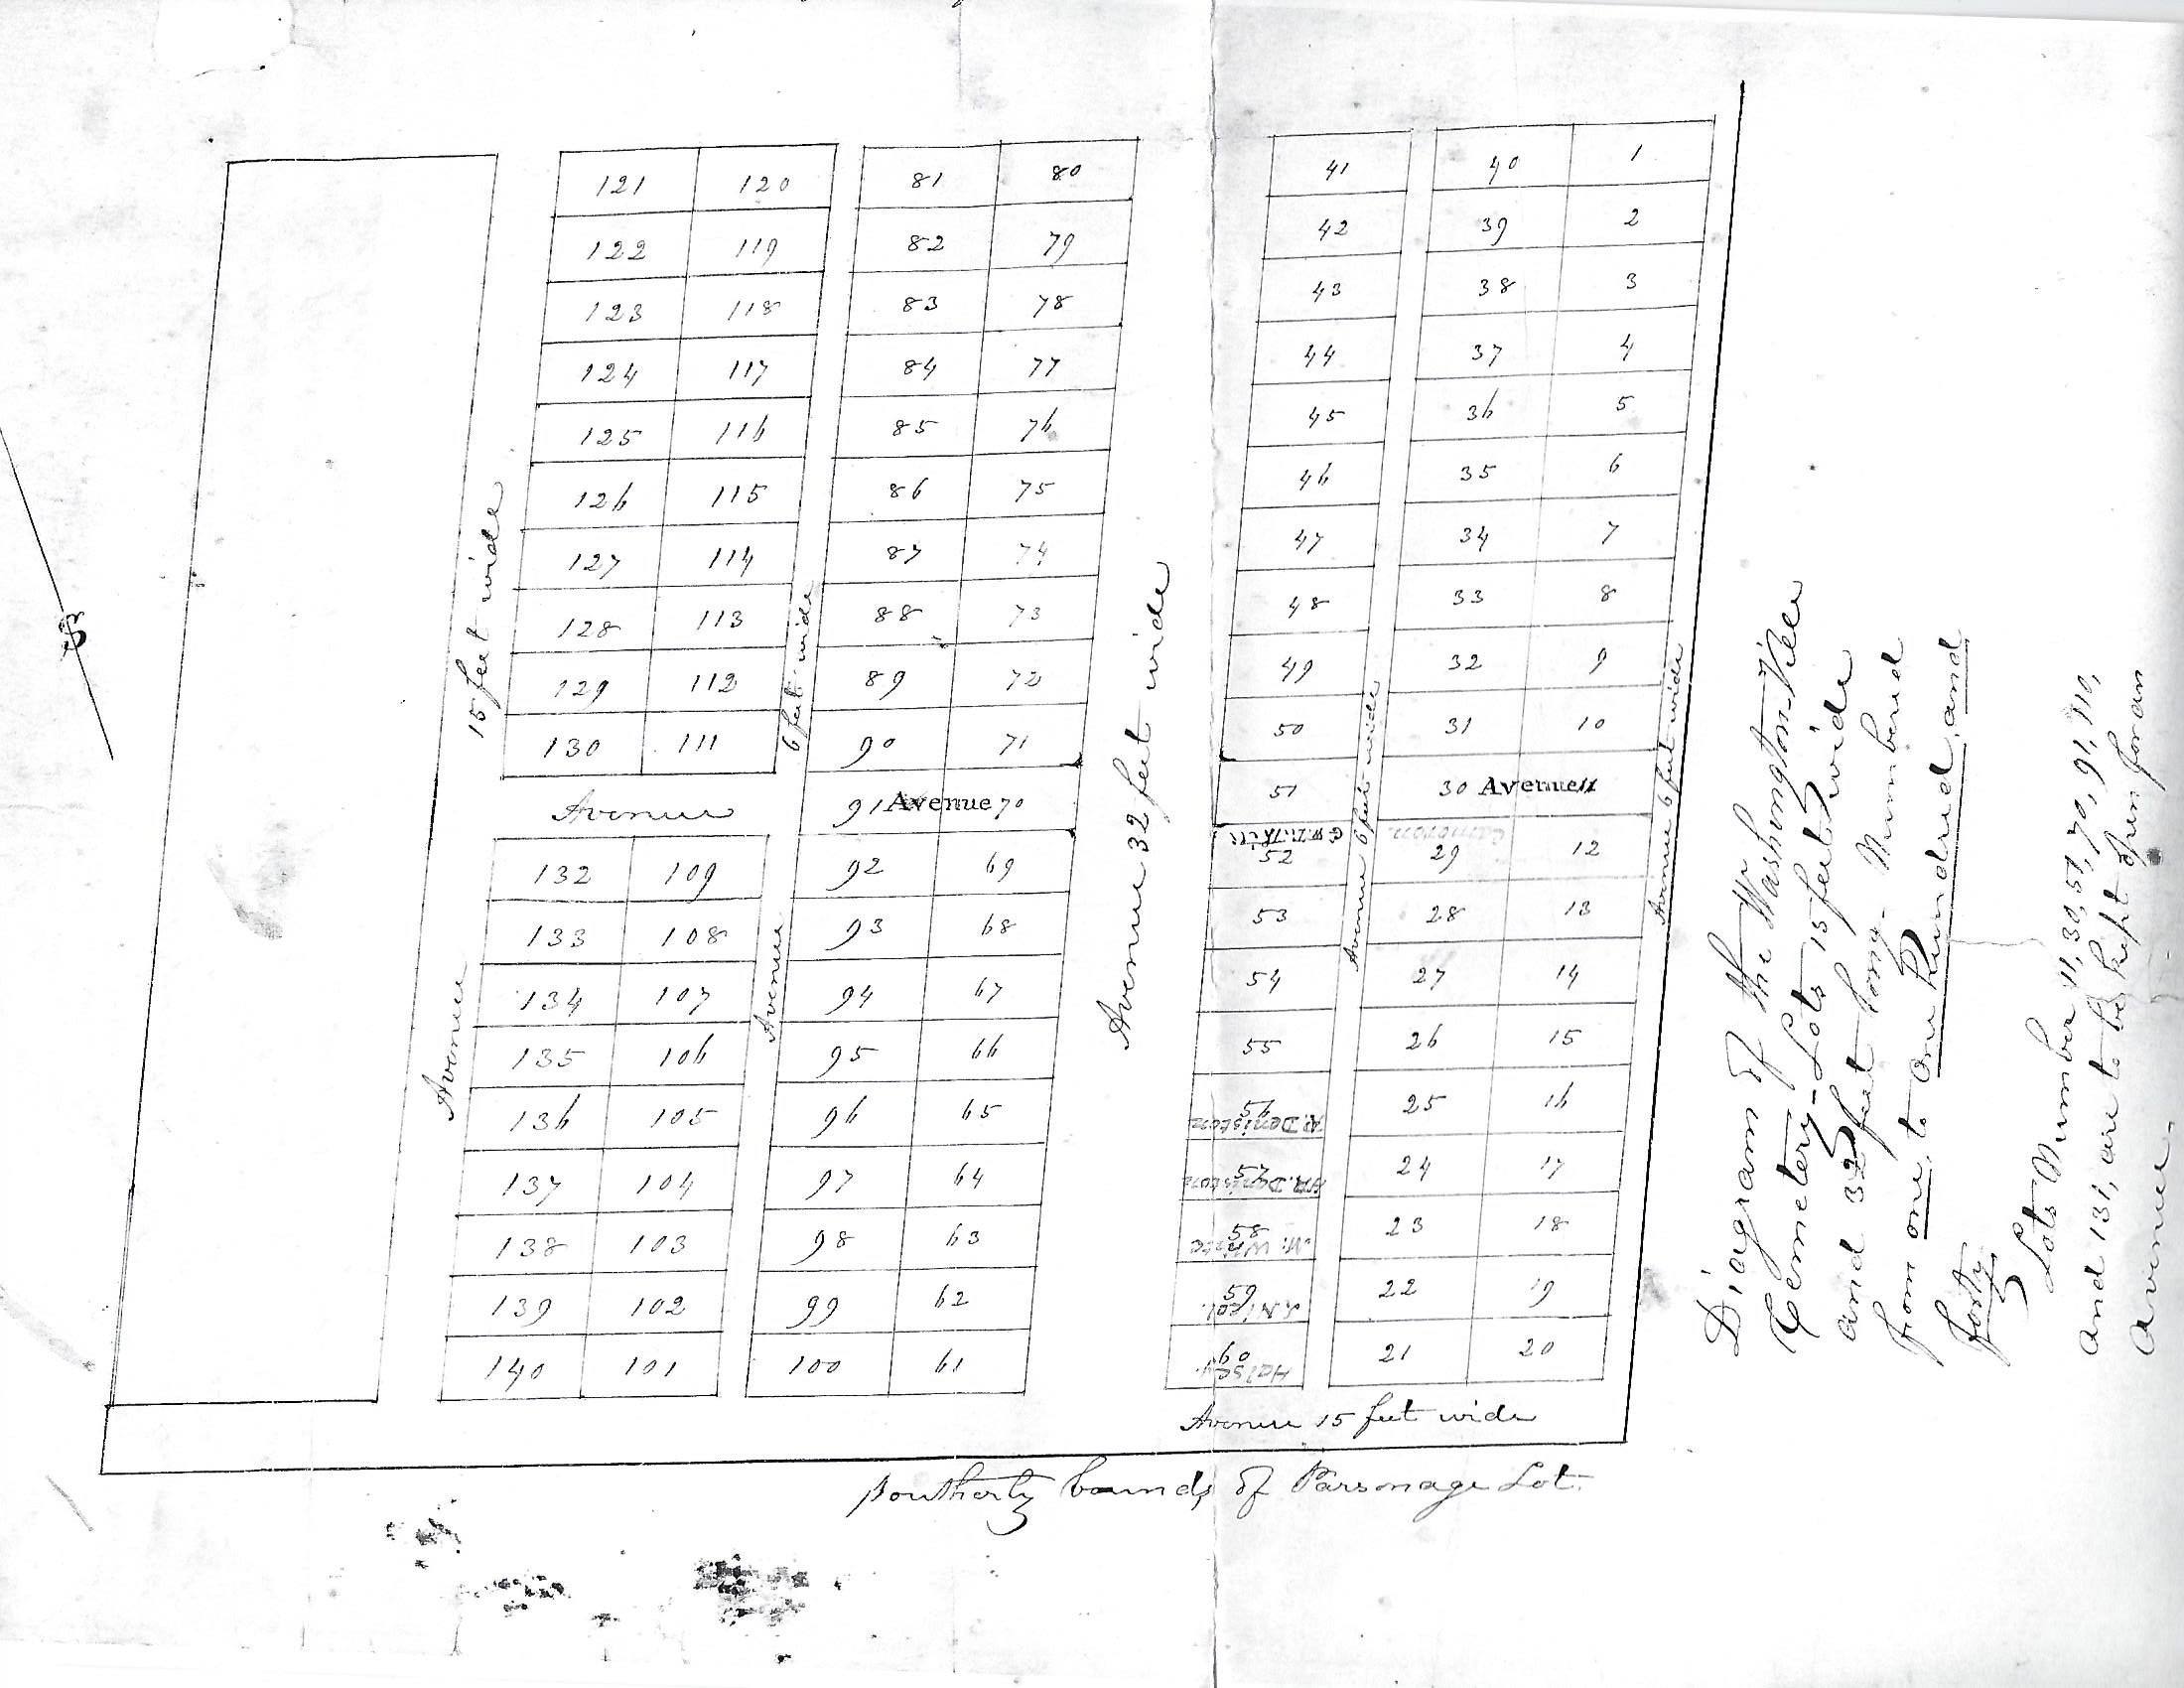 121 120 81 80 41 40 1
122 119 82 79 42 39 2
123 118 83 78 43 38 3
124 117 84 77 44 37 4
125 116 85 76 45 36 5
126 115 86 75 46 35 6
127 114 87 74 47 34 7
128 113 88 73 48 33 8
129 112 89 72 49 32 9
130 111 90 71 50 31 10
Avenue 91 Avenue 70 51 30 Avenue 11
132 109 92 69 52 29 12
133 108 93 68 53 28 13
134 107 94 67 54 27 14
135 106 95 66 55 26 15
136 105 96 65 R. Deniston 25 16
137 104 97 64 57 R. Deniston 24 17
138 103 98 63 58 M. White 23 18
139 102 99 62 59 Nicol. 22 19
140 101 100 61 60 Halsey. 21 20
Avenue 15 feet wide
Avenue 6 feet wide
Avenue 32 feet wide
Avenue 6 feet wide
Avenue 6 feet wide
Avenue 15 feet wide
southerly bounds of Parsonage Lot.
Diagram of the Washington Ville
Cemetery - Lots 15 feet wide
and 32 feet long. Numbered
from one to one hundred and
forty
Lots Number 11, 30, 51, 70, 91, 110,
and 131, are to be kept open for an
Avenue.